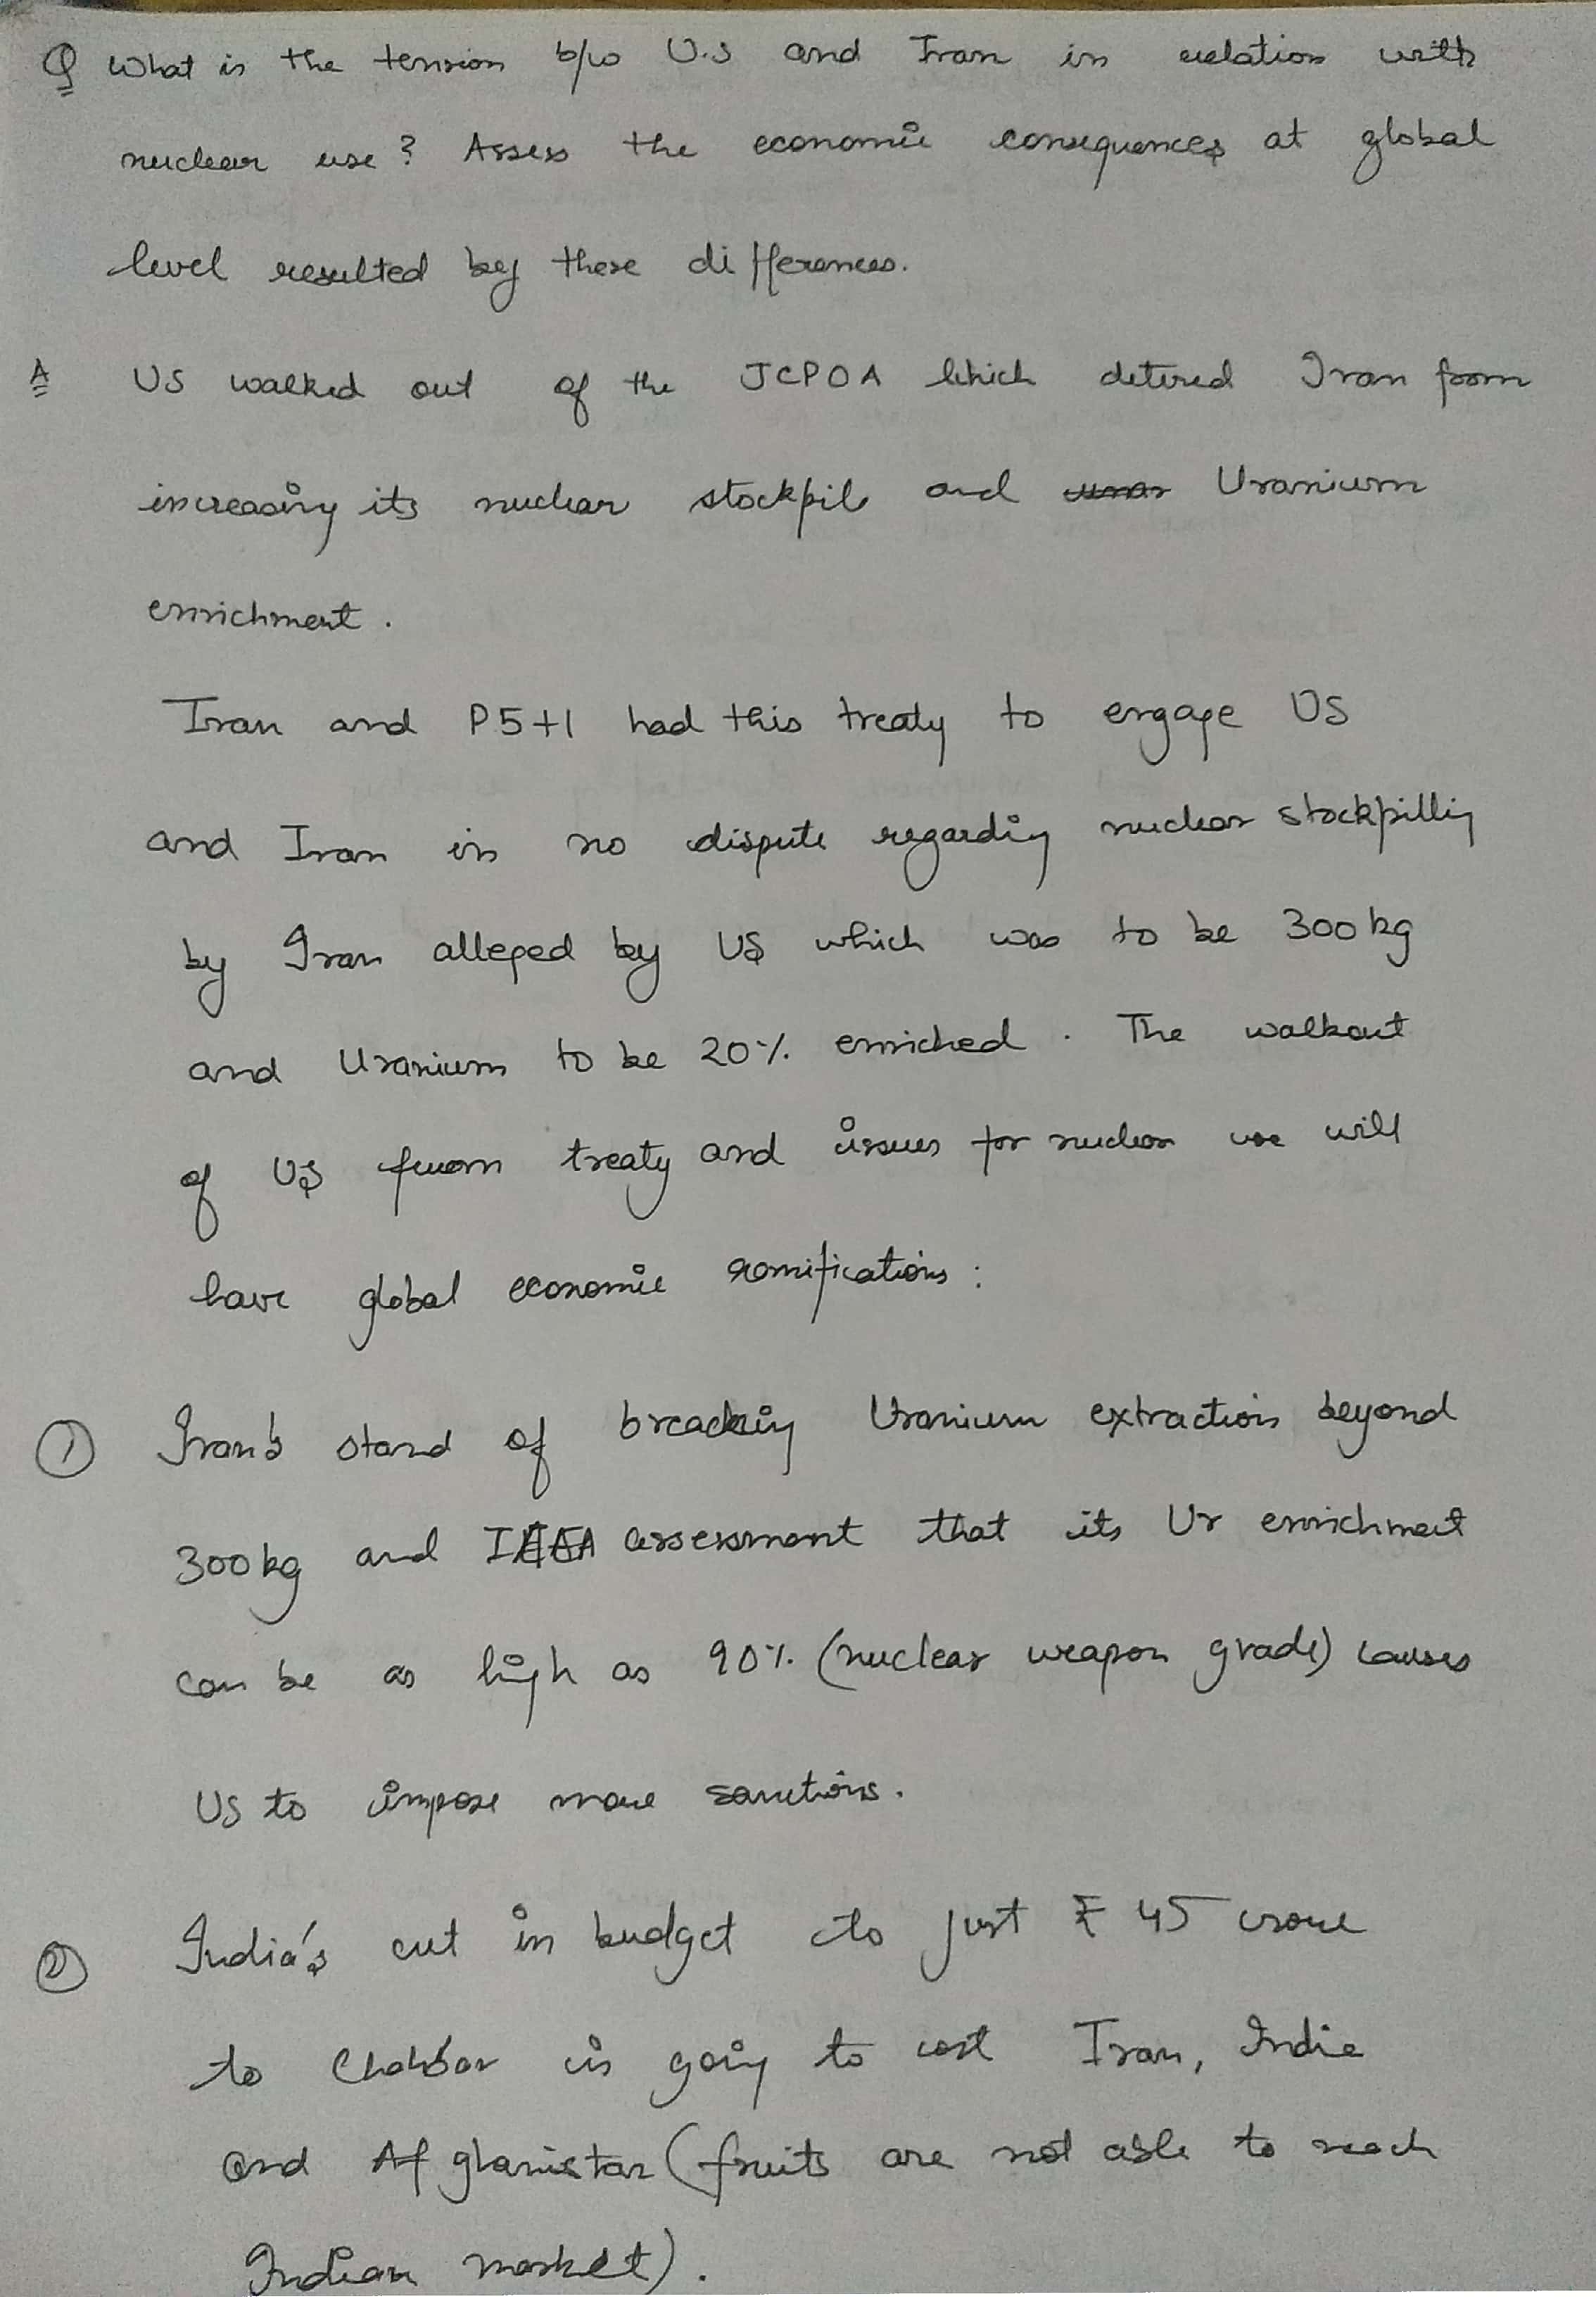 Q What is the tension b/w U.S and Iran in relation with
nuclear use? Assess the economic consequences at global
level resulted by these differences.
A US walked out of the JCPOA which detered Iran from
increasing its nuclear stockpile and Uranium
enrichment.
Iran and P5+1 had this treaty to engage US
and Iran in no dispute regarding nuclear stockpilling
by Iran alleged by US which was to be 300 kg
and Uranium to be 20% enriched. The walkout
of US from treaty and issues for nuclear use will
have global economic ramifications:
① Iran's stand of breaching Uranium extraction beyond
300 kg and IAEA assessment that its Ur enrichment
can be as high as 90% (nuclear weapon grade) causes
US to impose more sanctions.
② India's cut in budget to just ₹ 45 crore
to Chahbar is going to cost Iran, India
and Afghanistan (fruits are not able to reach
Indian market).